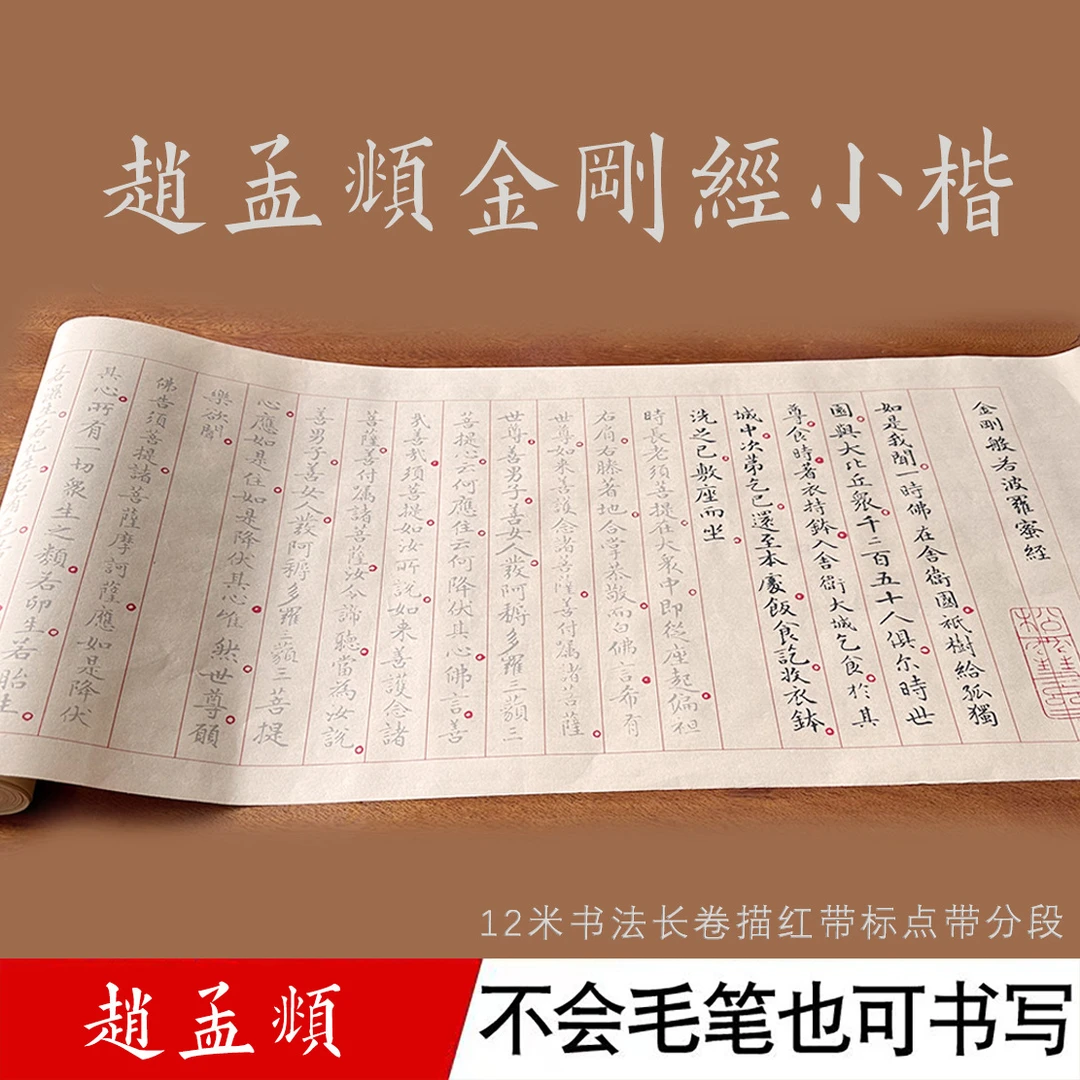 趙孟頫金剛經小楷
金剛般若波羅蜜經
如是我聞一時佛在舍衛國祇樹給孤獨
園與大比丘衆千二百五十人俱尒時世
尊食時著衣持鉢入舍衛大城乞食於其
城中次第乞已還至本處飯食訖收衣鉢
洗足已敷座而坐
時長老須菩提在大衆中即從座起偏袒
右肩右膝著地合掌恭敬而白佛言希有
世尊如来善護念諸菩薩善付屬諸菩薩
世尊善男子善女人發阿耨多羅三藐三
菩提心云何應住云何降伏其心佛言善
哉善哉須菩提如汝所說如来善護念諸
菩薩善付屬諸菩薩汝今諦聽當為汝說
善男子善女人發阿耨多羅三藐三菩提
心應如是住如是降伏其心唯然世尊願
樂欲聞
佛告須菩提諸菩薩摩訶薩應如是降伏
其心所有一切衆生之類若卵生若胎生
12米书法长卷描红带标点带分段
趙孟頫
不会毛笔也可书写